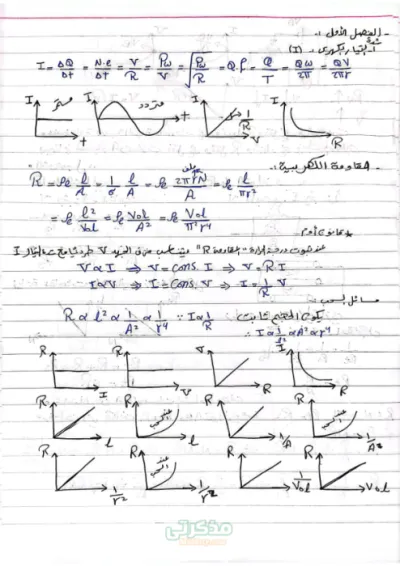 - الفصل الأول :-
أ- التيار الكهربى (I)
I = ΔQ/Δt = N·e/Δt = V/R = Pw/V = √(Pw/R) = Q·f = Q/T = Qω/2π = QV/2πr
I I I I
مستمر متردد 1/R
t t V R
- المقاومة الكهربية :-
R = ρe l/A = 1/σ l/A = ρe 2πrN/A = ρe l/πr²
= ρe l²/Vol = ρe Vol/A² = ρe Vol/π²r⁴
* قانون أوم
V ∝ I ⇒ V = cons. I ⇒ V = R I
I ∝ V ⇒ I = cons. V ⇒ I = 1/R V
مسائل السحب :-
R ∝ l² ∝ 1/A² ∝ 1/r⁴ ∵ I ∝ 1/R يكون الحجم ثابت
∴ I ∝ 1/l² ∝ A² ∝ r⁴
R R V I
I V R R
R R R R
l l 1/A 1/A²
R R R R
1/r² 1/r² 1/Vol Vol
مذكرتي